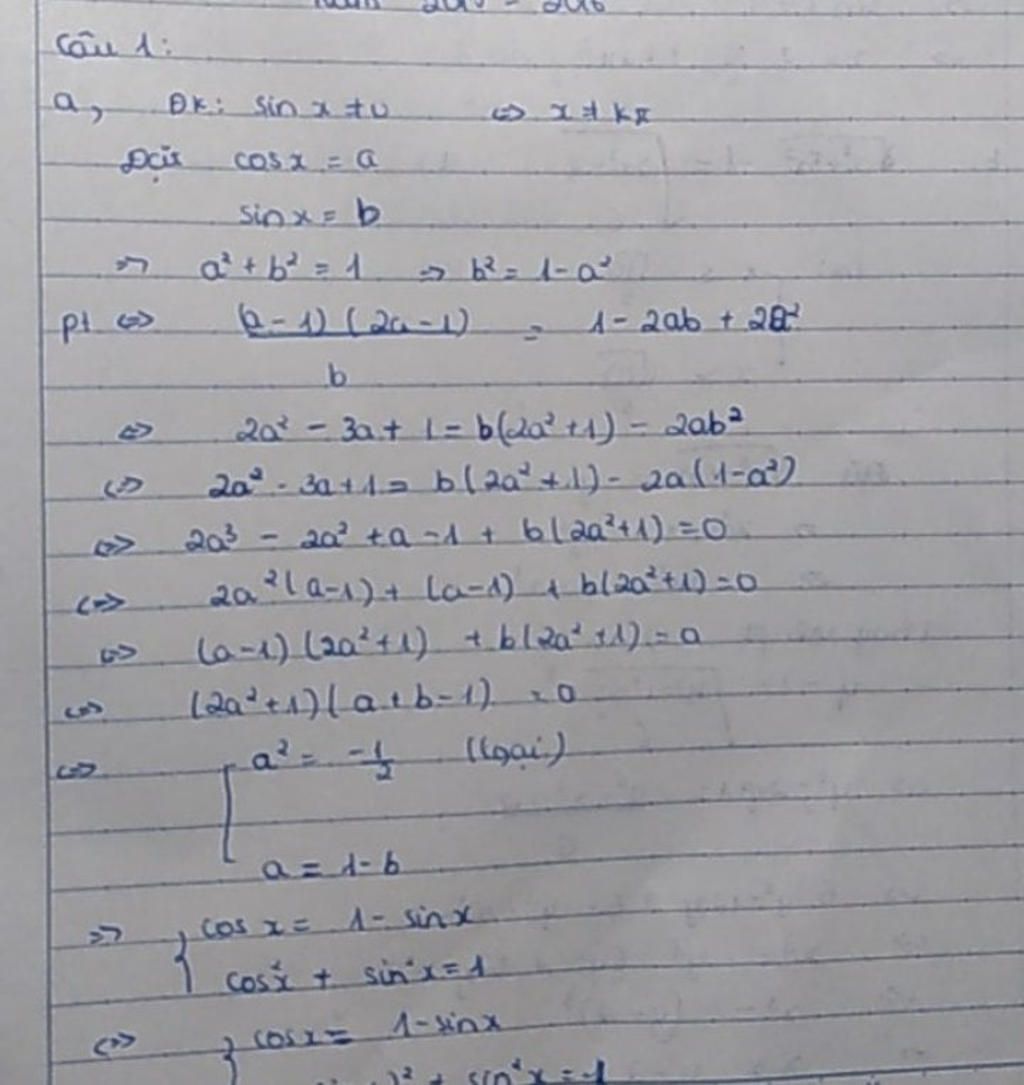 Câu 1:
a, ĐK: sin x ≠ 0 ⇔ x ≠ kπ
Đặt cos x = a
sin x = b
⇒ a² + b² = 1 ⇒ b² = 1 - a²
pt ⇔ (a - 1)(2a - 1) / b = 1 - 2ab + 2a²
⇔ 2a² - 3a + 1 = b(2a² + 1) - 2ab²
⇔ 2a² - 3a + 1 = b(2a² + 1) - 2a(1 - a²)
⇔ 2a³ - 2a² + a - 1 + b(2a² + 1) = 0
⇔ 2a²(a - 1) + (a - 1) + b(2a² + 1) = 0
⇔ (a - 1)(2a² + 1) + b(2a² + 1) = 0
⇔ (2a² + 1)(a + b - 1) = 0
⇔ [ a² = -1/2 (loại)
a = 1 - b
⇒ { cos x = 1 - sin x
cos²x + sin²x = 1
⇔ { cos x = 1 - sin x
)² + sin²x = 1